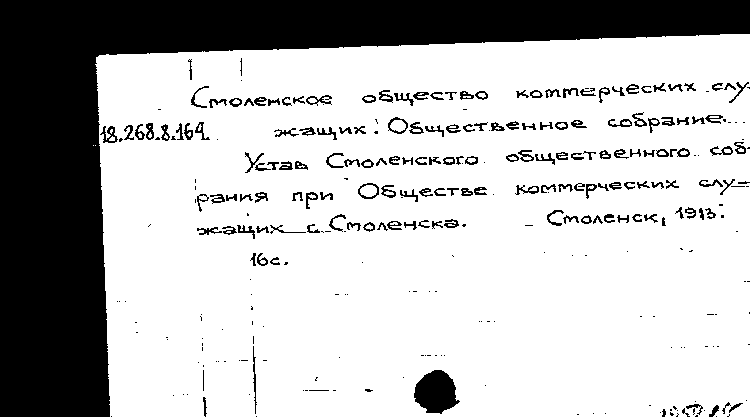 Смоленское общество коммерческих слу-
18.268.8.164. жащих. Общественное собрание.
Устав Смоленского общественного соб-
рания при Обществе коммерческих слу-
жащих г. Смоленска. – Смоленск, 1913.
16с.